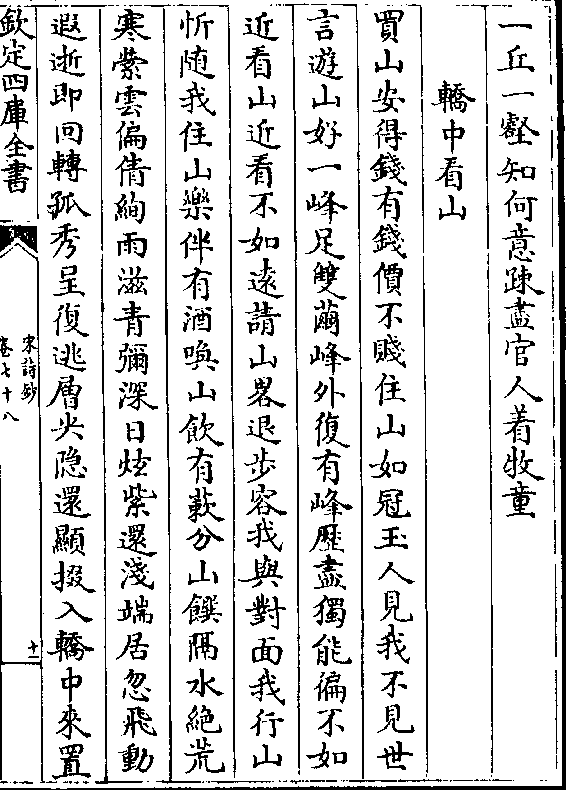 一丘一壑知何意疎盡官人着牧童
轎中看山
買山安得錢有錢價不賤住山如冠玉人見我不見世
言遊山好一峰足雙繭峰外復有峰歷盡獨能徧不如
近看山近看不如遠請山畧退步容我與對面我行山
忻随我住山樂伴有酒喚山飲有蔌分山饌隔水絶荒
寒縈雲偏倩絢雨滋青彌深日炫紫還淺端居忽飛動
遐逝即回轉孤秀呈復逃層尖隐還顯掇入轎中來置
欽定四庫全書
宋詩鈔
卷七十八
十一